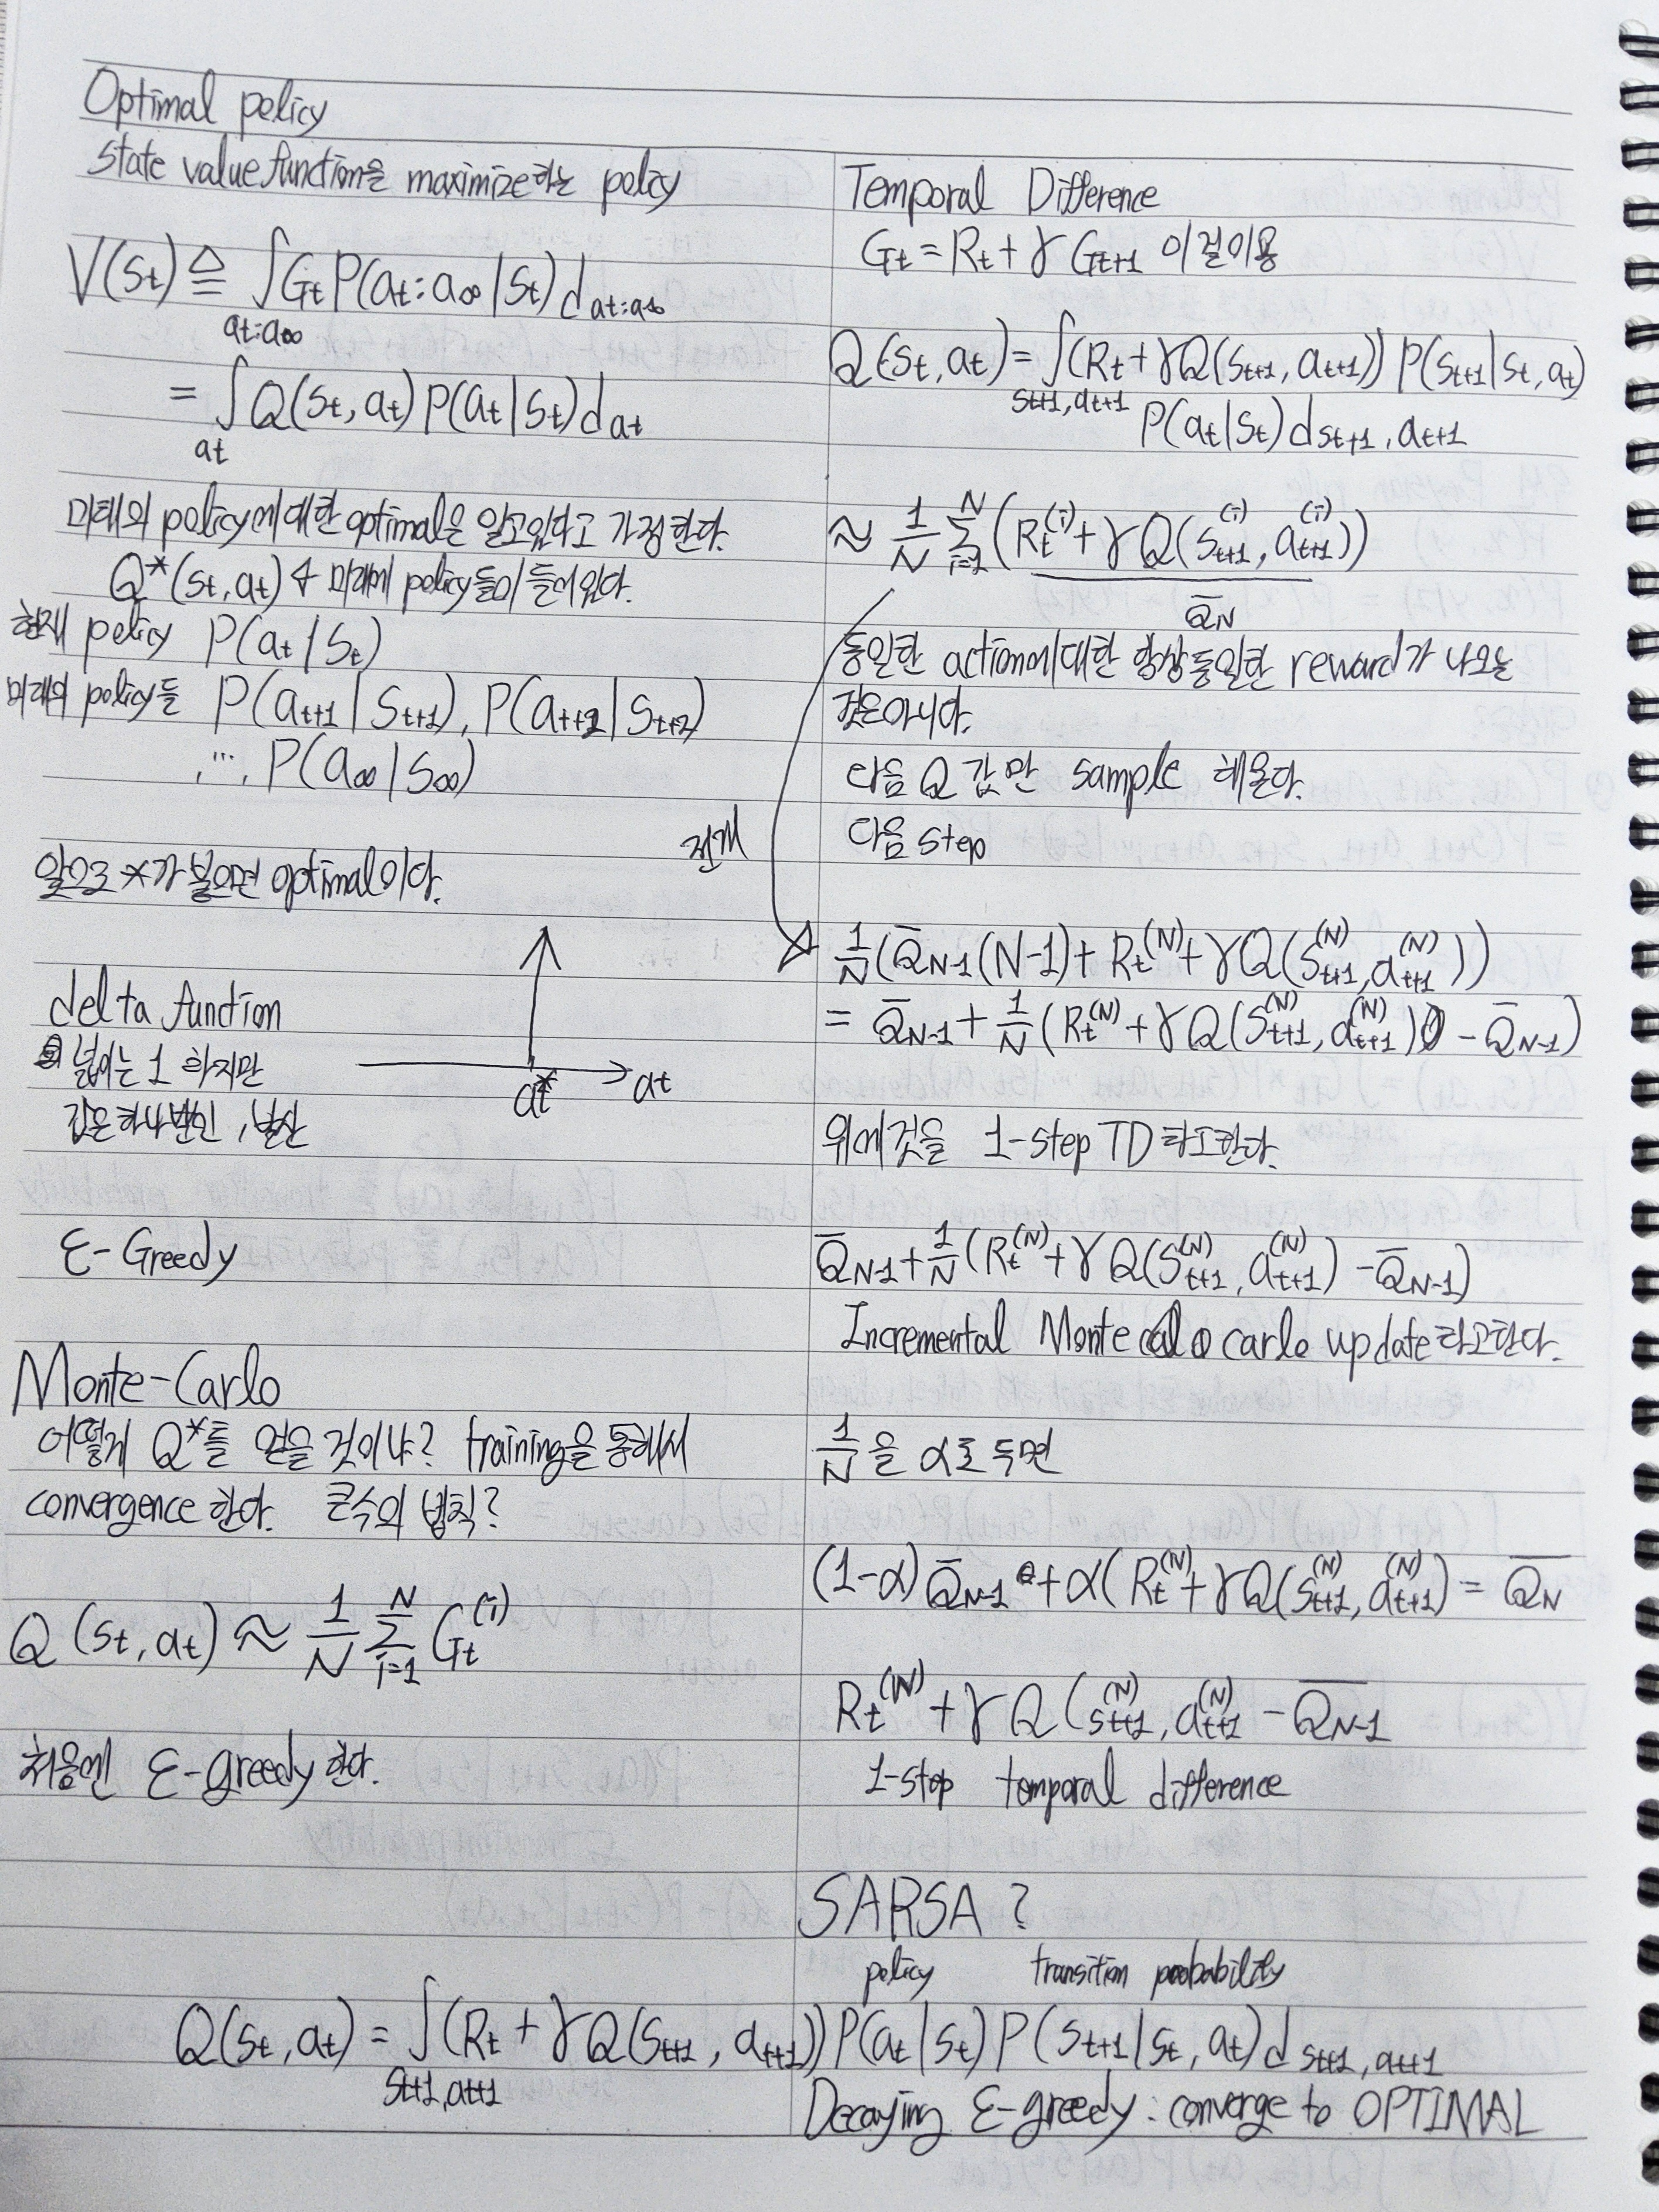 Optimal policy
State value function을 maximize하는 policy
V(St) ≜ ∫Gt P(at:a∞|St) d at:a∞
at:a∞
= ∫Q(St, at) P(at|St) d at
at
미래의 policy에 대한 optimal은 알고있다고 가정한다.
Q*(St, at) ← 미래에 policy들이 들어있다.
현재 policy P(at|St)
미래의 policy들 P(at+1|St+1), P(at+2|St+2)
, ..., P(a∞|S∞)
앞으로 *가 붙으면 optimal이다.
delta function
넓이는 1 하지만
값은 하나뿐인, 발산
at*
at
ε-Greedy
Monte-Carlo
어떻게 Q*를 얻을 것이냐? training을 통해서
convergence 한다. 큰수의 법칙?
Q(St, at) ≈ 1/N Σ i=1 N Gt(i)
처음엔 ε-greedy 한다.
Temporal Difference
Gt = Rt + γ Gt+1 이걸이용
Q(St, at) = ∫(Rt + γQ(St+1, at+1)) P(St+1|St, at)
St+1, at+1
P(at|St) d St+1, at+1
≈ 1/N Σ i=1 N (Rt(i) + γ Q(St+1(i), at+1(i)))
Q̄N
동일한 action에 대한 항상 동일한 reward가 나오는
것은아니다.
다음 Q 값만 sample 해온다.
다음 step
전개
1/N (Q̄N-1 (N-1) + Rt(N) + γQ(St+1(N), at+1(N)))
= Q̄N-1 + 1/N (Rt(N) + γQ(St+1(N), at+1(N)) - Q̄N-1)
위에것을 1-step TD 라고한다.
Q̄N-1 + 1/N (Rt(N) + γ Q(St+1(N), at+1(N)) - Q̄N-1)
Incremental Monte carlo update라고한다.
1/N을 α로 두면
(1-α) Q̄N-1 + α(Rt(N) + γQ(St+1(N), at+1(N)) = Q̄N
Rt(N) + γ Q(St+1(N), at+1(N) - Q̄N-1
1-stop temporal difference
SARSA ?
policy transition probability
Q(St, at) = ∫(Rt + γQ(St+1, at+1)) P(at|St) P(St+1|St, at) d St+1, at+1
St+1, at+1
Decaying ε-greedy : converge to OPTIMAL